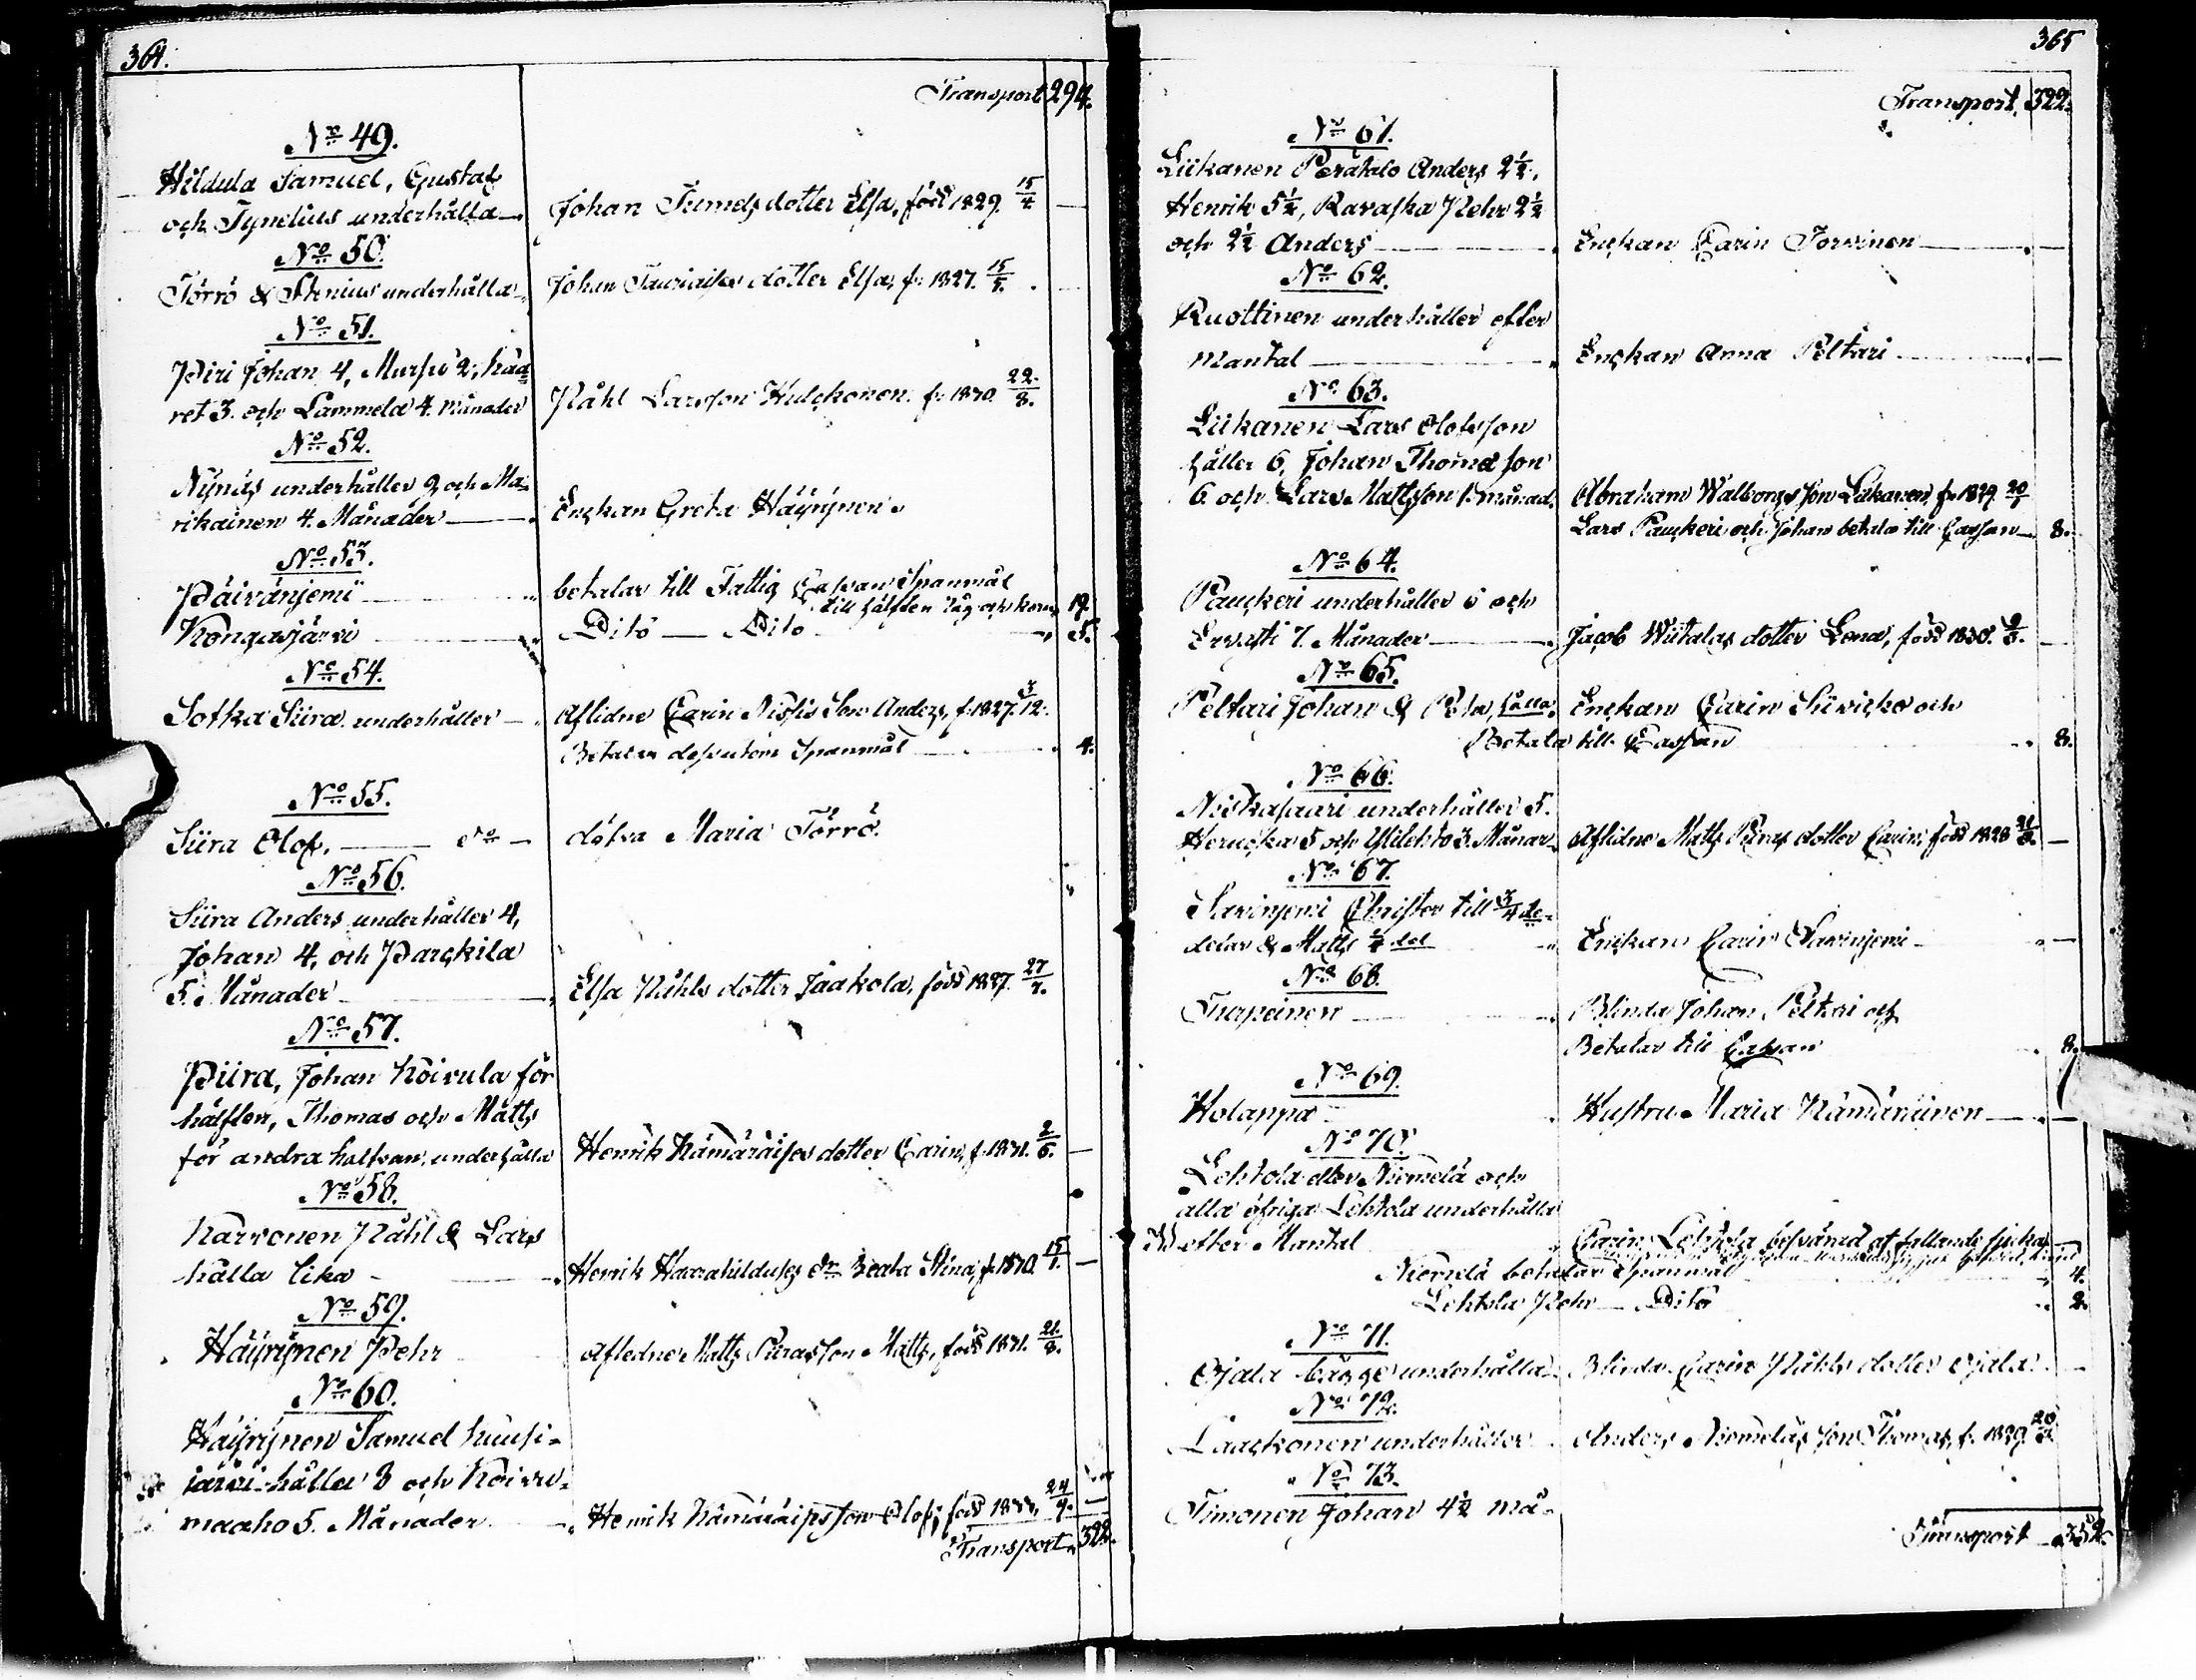 364.
Transport 294.
No 49.
Hildula Samuel, Gustaf
och Tynelius underhålla
Johan dotter Elsa, född 1829. 15/4
No 50.
Törrö & Stenius underhålla
Johan dotter Elsa, f. 1827. 15/5.
No 51.
Piri Johan 4, Mursu 2, Häd-
ret 3. och Lammela 4. Månader
Påhl Larsson f. 1830. 22/8.
No 52.
Nynäs underhåller 9 och Ma-
rikainen 4. Månader
Enckan Greta Häyrynen
No 53.
Päivänjemi
betalar till Fattig Cassan Spanmål
till hälften råg och korn 19.
Kongasjärvi
Dito Dito 5.
No 54.
Sotka Siira underhåller
Aflidne Carin Son Anders, f. 1827. 3/12.
Betalar desutom Spanmål 4.
No 55.
Siira Olof, do
döfva Maria Törrö.
No 56.
Siira Anders underhåller 4,
Johan 4, och Parckila
5. Månader
Elsa Påhls dotter Jaakola, född 1827. 27/7.
No 57.
Piira, Johan Koivula för
hälften, Thomas och Matts
för andra halfvan, underhålla
Henrik Kämäräises dotter Carin, f. 1831. 2/6.
No 58.
Karvonen Påhl & Lars
hålla lika
Henrik dr Beata Stina, f. 1830. 15/1.
No 59.
Häyrynen Pehr
Afledne Matts Piiras Son Matts, född 1831. 21/8.
No 60.
Häyrynen Samuel Huusi-
järvi håller 8 och Koivu-
maaho 5. Månader
Henrik Kämäräises son Olof, född 24/9.
Transport 322.
365
Transport. 322.
No 61.
Liikanen Perätalo Anders 2½,
Henrik 5½, Ravaska Pehr 2½
och 2½ Anders
Enckan Carin Torvinen
No 62.
Ruottinen underhåller efter
Mantal
Enckan Anna Peltari
No 63.
Liikanen Lars Olofsson
håller 6, Johan Thomasson
6 och Lars Mattsson 1. månad.
Abraham Walborgs Son Lakanen, f. 1829. 20/7
Lars Pauckeri och Johan betala till Cassan 8.
No 64.
Pauckeri underhåller 6 och
Ervasti 7. Månader
Jacob Wiitalas dotter Lena, född 1830. 9/8.
No 65.
Peltari Johan & Peter, hålla
Enckan Carin och
Betala till Cassan 8.
No 66.
Niskasaari underhåller 5.
5 och Ylilehto 3. Månar
Aflidne Matts Piiras dotter Carin, född 1828
No 67.
Savinjemi Christer till 3/4 de-
delar & Matts ¼ del
Enckan Carin Savinjemi
No 68.
Turpeinen
Blinda Johan Peltari och
Betalar till Cassan 8.
No 69.
Holappa
Hustru Maria Kämäräinen
No 70.
Lehtola eller Niemelä och
alla öfriga Lehtola underhålla
efter Mantal
Carin Lehtola besvärad af fallande sjukan
Niemelä betalar Spanmål 4.
Lehtola Pehr Dito 2.
No 71.
Ojala bägge underhålla
Blinda Carin Påhls dotter Ojala.
No 72.
Laackonen underhåller
Anders Niemeläs son Thomas, f. 1829.
No 73.
Timonen Johan 4½ må-
Transport 352.